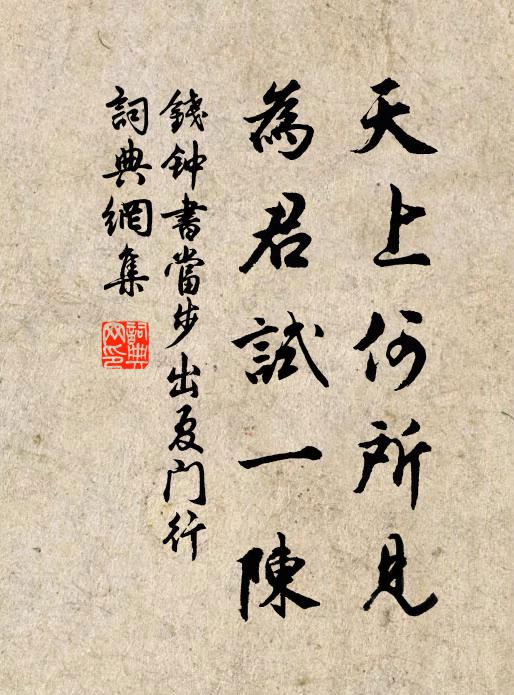 天上何所見
為君試一陳
錢钟書當步出夏门行
詞典網集
詞典网印